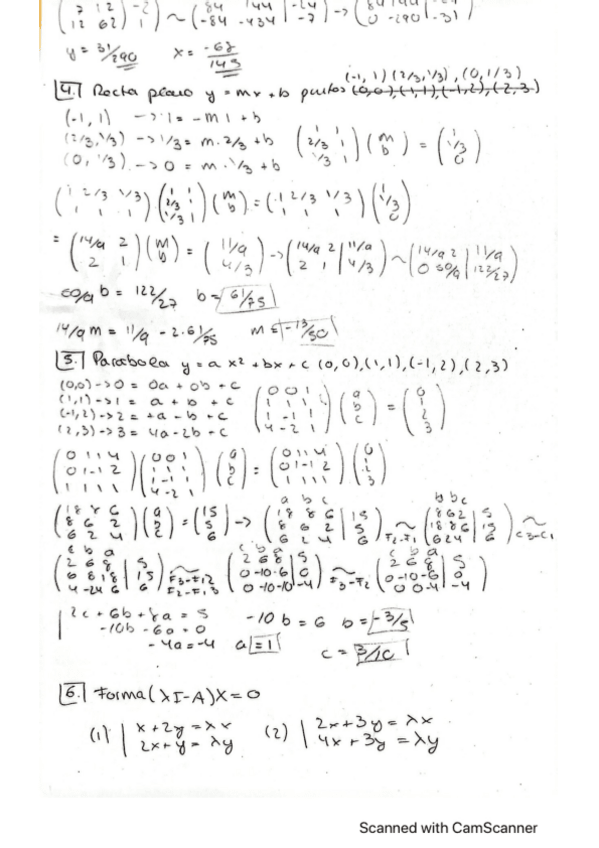 (7 12 | -2
12 62 | 1) ~ (84 144 | -24
-84 -434 | -7) → (84 144 | -24
0 -290 | -31)
y = 31/290 x = -62/145
4. Recta plano y = mx + b puntos (-1, 1) (2/3, 1/3), (0, 1/3) (0,0), (1,1), (-1,2), (2,3)
(-1, 1) → 1 = -m 1 + b
(2/3, 1/3) → 1/3 = m · 2/3 + b
(0, 1/3) → 0 = m · 1/3 + b
(1 1
2/3 1
1/3 1) (m
b) = (1
1/3
0)
(1 2/3 1/3
1 1 1) (1 1
2/3 1
1/3 1) (m
b) = (1 2/3 1/3
1 1 1) (1
1/3
0)
= (14/9 2
2 1) (m
b) = (11/9
4/3) → (14/9 2 | 11/9
2 1 | 4/3) ~ (14/9 2 | 11/9
0 50/9 | 122/27)
60/9 b = 122/27 b = 61/75
14/9 m = 11/9 - 2 · 61/75 m = -13/50
5. Parabola y = a x² + bx + c (0, 0), (1, 1), (-1, 2), (2, 3)
(0,0) → 0 = 0a + 0b + c
(1,1) → 1 = a + b + c
(-1,2) → 2 = +a - b + c
(2,3) → 3 = 4a - 2b + c
(0 0 1
1 1 1
1 -1 1
4 -2 1) (a
b
c) = (0
1
2
3)
(0 1 1 4
0 1 -1 2
1 1 1 1) (0 0 1
1 1 1
1 -1 1
4 -2 1) (a
b
c) = (0 1 1 4
0 1 -1 2
1 1 1 1) (0
1
2
3)
(18 8 6
8 6 2
6 2 4) (a
b
c) = (15
5
6) → (a b c
18 8 6 | 15
8 6 2 | 5
6 2 4 | 6) ~ F2-F1 (8 6 2 | 5
18 8 6 | 15
6 2 4 | 6) ~ C3-C1
(c b a
2 6 8 | 5
6 8 18 | 15
4 -2 4 6 | 6) ~ (c b a
2 6 8 | 5
0 -10 -6 | 0
0 -10 -10 | -4) ~ F3-F2 (c b a
2 6 8 | 5
0 -10 -6 | 0
0 0 -4 | -4)
2c + 6b + 8a = 5
-10b - 6a = 0
-4a = -4
-10 b = 6 b = -3/5
a = 1 c = 3/10
6. Forma (λI - A)X = 0
(1) | x + 2y = λx
2x + y = λy
(2) | 2x + 3y = λx
4x + 3y = λy
Scanned with CamScanner